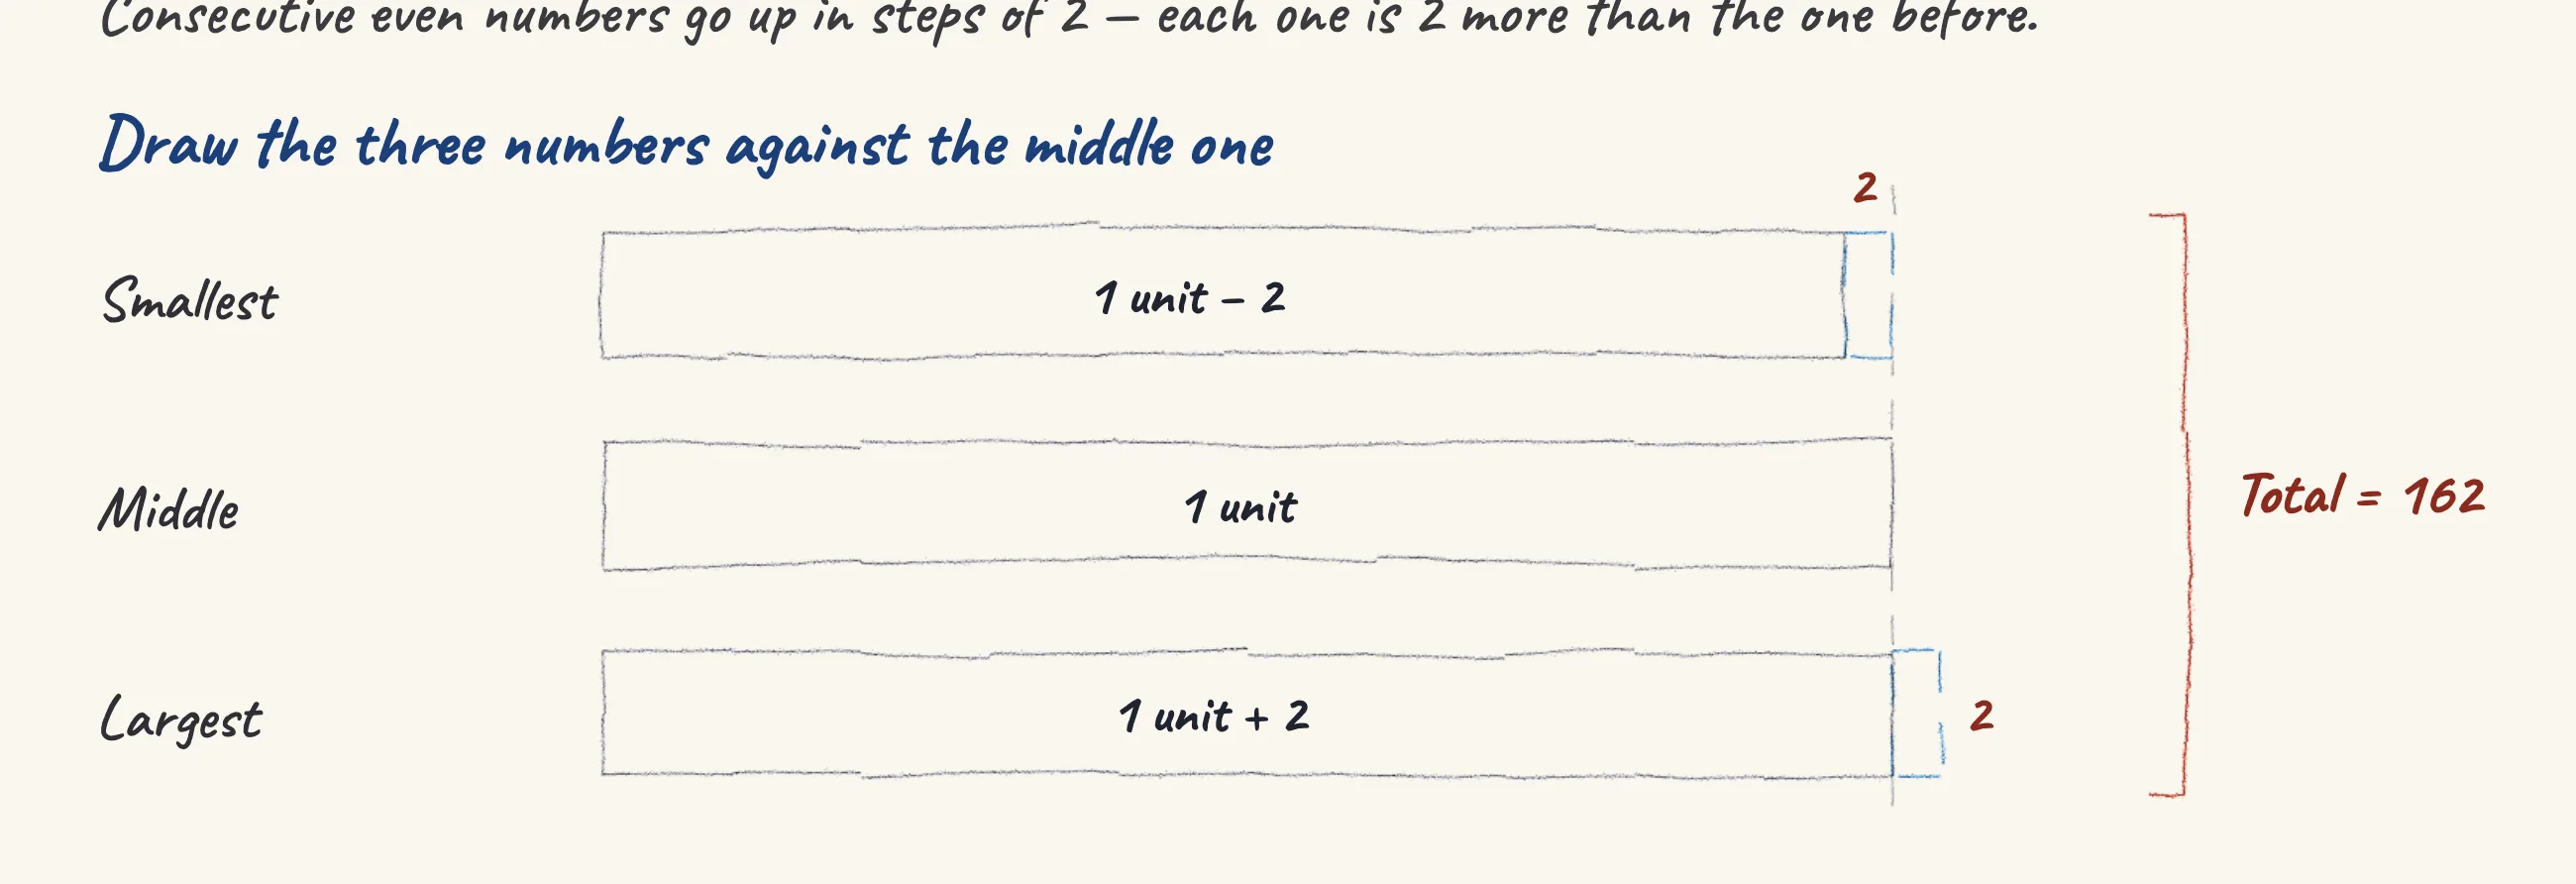 Consecutive even numbers go up in steps of 2 – each one is 2 more than the one before.
Draw the three numbers against the middle one
2
Smallest
1 unit – 2
Middle
1 unit
Total = 162
Largest
1 unit + 2
2